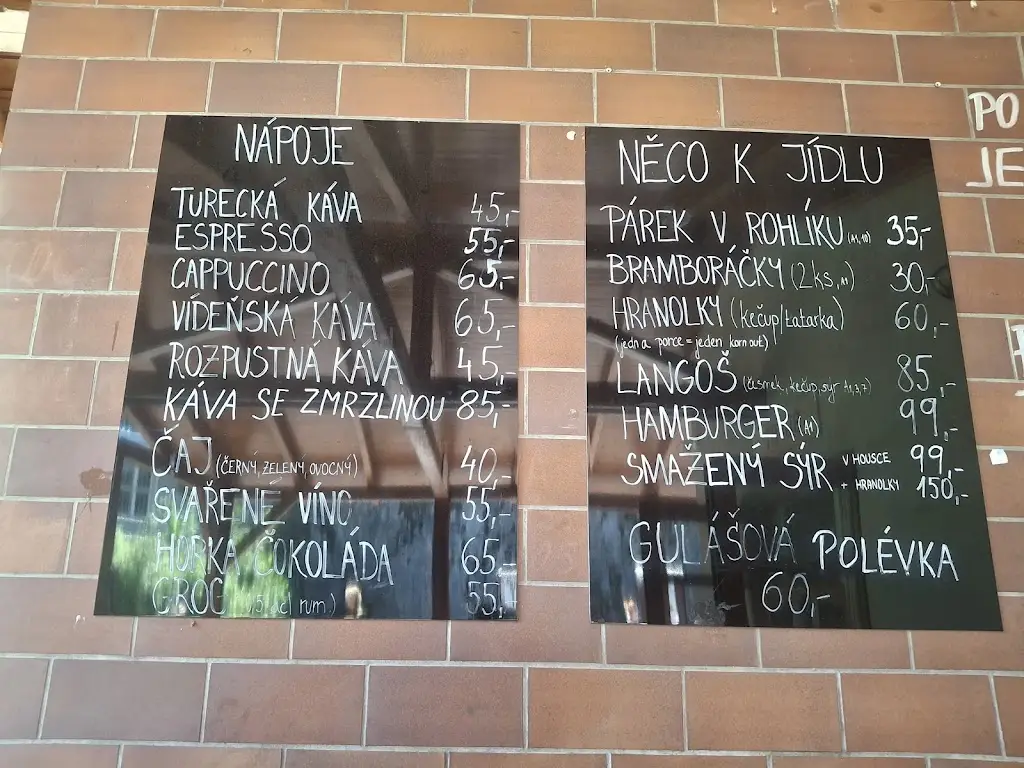 NÁPOJE
TURECKÁ KÁVA 45,-
ESPRESSO 55,-
CAPPUCCINO 65,-
VÍDEŇSKÁ KÁVA 65,-
ROZPUSTNÁ KÁVA 45,-
KÁVA SE ZMRZLINOU 85,-
ČAJ (ČERNÝ, ZELENÝ, OVOCNÝ) 40,-
SVAŘENÉ VÍNO 55,-
HORKÁ ČOKOLÁDA 65,-
GROG rum) 55,-
NĚCO K JÍDLU
PÁREK V ROHLÍKU (A1,10) 35,-
BRAMBORÁČKY (2ks, A1) 30,-
HRANOLKY (kečup/tatarka) 60,-
(jedna porce = jeden kornout)
LANGOŠ (česnek, kečup, sýr A1,3,7) 85,-
HAMBURGER (A1) 99,-
SMAŽENÝ SÝR V HOUSCE 99,-
+ HRANOLKY 150,-
GULÁŠOVÁ POLÉVKA
60,-
PO
JE